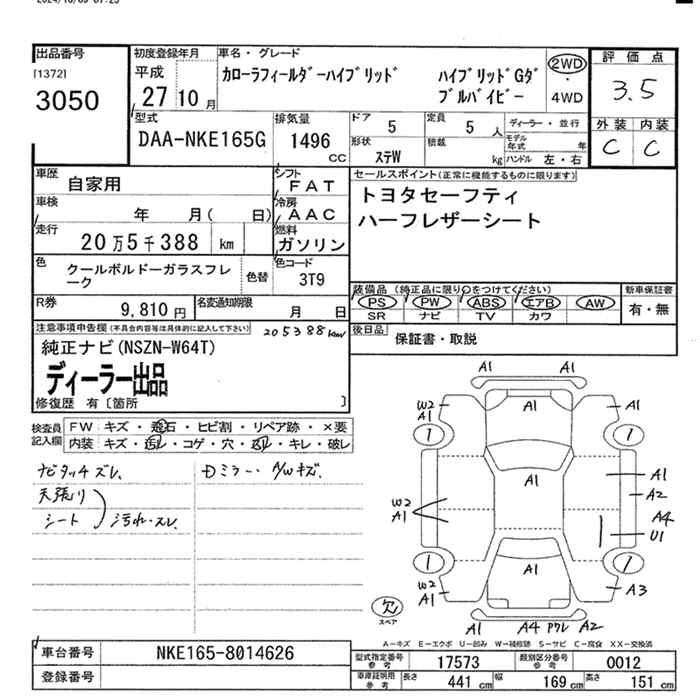 出品番号
[1372]
3050
初度登録年月
平成
27 10 月
車名・グレード
カローラフィールダーハイブリッド
ハイブリッドGダブルバイビー
2WD
・
4WD
評価点
3.5
外装 内装
C C
型式
DAA-NKE165G
排気量
1496
CC
ドア
5
定員
5 人
形状
ステW
積載
kg
ディーラー・並行
モデル年式 年
ハンドル 左・右
車歴
自家用
シフト
FAT
車検
年 月( 日)
冷房
AAC
走行
20万5千388 km
燃料
ガソリン
色
クールボルドーガラスフレーク
色替
色コード
3T9
R券
9,810 円
名変通知期限
月 日
セールスポイント(正常に機能するものに限ります)
トヨタセーフティ
ハーフレザーシート
装備品(純正品に限り○をつけてください)
PS PW ABS エアB AW
SR ナビ TV カワ
新車保証書
有・無
後日品
保証書・取説
注意事項申告欄(不具合内容等は具体的に記入して下さい)
205388km
純正ナビ(NSZN-W64T)
ディーラー出品
修復歴 有〔箇所 〕
検査員記入欄
FW キズ・飛石・ヒビ割・リペア跡・×要
内装 キズ・汚レ・コゲ・穴・スレ・キレ・破レ
ナビタッチズレ.
Dミラー・AWキズ.
天張り
シート
汚れ・スレ
A1 A1
W2
A1
A1
A1
1
1
A1
A1
A2
W2
A1
A4
U1
1
1
W2
A1
A1
A3
欠
スペア
A1 A4 ワレ A2
A－キズ E－エクボ U－凹み W－補修跡 S－サビ C－腐食 XX－交換済
車台番号
NKE165-8014626
登録番号
型式指定番号
参考
17573
類別区分番号
参考
0012
車庫証明用
参考
長さ 441 cm
幅 169 cm
高さ 151 cm